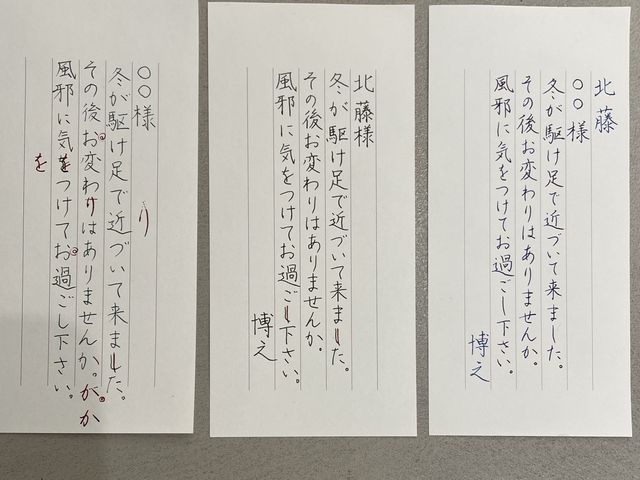 北藤
〇〇様
冬が駆け足で近づいて来ました。
その後お変わりはありませんか。
風邪に気をつけてお過ごし下さい。
博之
北藤様
冬が駆け足で近づいて来ました。
その後お変わりはありませんか。
風邪に気をつけてお過ごし下さい。
博之
〇〇様
り
冬が駆け足で近づいて来ました。
その後お変わりはありませんか。がか
風邪に気をつけてお過ごし下さい。
を